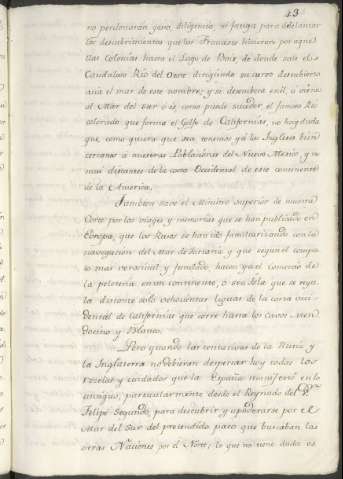 43
no perdonaran gasto, diligencia, ni fatiga para adelantar
los descubrimientos que los Franceses hicieron por aque
llas colonias hasta el Lago de Bois, de donde sale el
Caudaloso Rio del Oeste dirigiendo su curso descubierto
acia el mar de este nombre; y si desemboca en él, ò viene
al Mar del sur ò és como puede suceder el famoso Rio
colorado que forma el Golfo de Californias, no hay duda
que como quiera que sea tenemos yá los Ingleses bien
cercanos á nuestras Poblaciones del Nuevo Mexico, y no
mui distantes de la costa Occidental de este continente
de la America.
Tambien save el Ministro superior de nuestra
Corte por los viages y memorias que se han publicado en
Europa, que los Rusos se han ido familiarizando con la
navegacion del Mar de Tartaria y que segun el concep
to mas verosimil y fundado, hacen yá el comercio de
la peleteria en un continente, ó sea Isla que se regu
la distante solo ochocientas leguas de la costa occi
dental de Californias que corre hasta los cavos Men
docino y Blanco.
Pero quando las tentativas de la Rusia y
la Inglaterra no debieran despertar hoy todos los
recelos y cuidados que la España manifestó en lo
antiguo, particularmente desde el Reynado del Sr.
Felipe Segundo, para descubrir y apoderarse por el
Mar del Sur del pretendido paso que buscaban las
otras Naciones por el Norte, lo que no tiene duda es